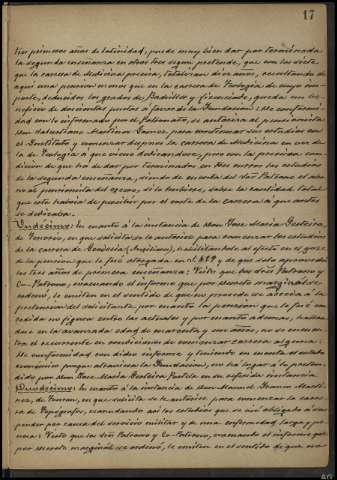 17
tres primeros años de latinidad, puede muy bien dar por terminada
la segunda enseñanza en otros tres según pretende, que con los siete
que la carrera de Medicina precisa, totalizan diez años, resultando de
aquí una pensión menos que en la carrera de Teología de mayor im-
porte, deducidos los grados de Bachiller y Licenciado, queda un be-
neficio de doscientas pesetas á favor de la Fundación: De conformi-
dad con lo informado por el Patronato, se autoriza al pensionista
Don Salustiano Martínez Gómez para continuar sus estudios en
el Instituto y comenzar después la carrera de Medicina en vez de
la de Teología á que viene dedicandose, pero con la precisa con-
dición de que ha de dar por terminados en tres cursos los estudios
de la segunda enseñanza, siendo de cuenta del Don Salustiano el abo-
no ó purimiento del exceso, si lo hubiese, sobre la cantidad total
que este habría de percibir por el resto de la carrera á que antes
se dedicaba.
Undécimo: En cuanto á la instancia de Don José María
de en que solicita se le autorice para comenzar los estudios
de la carrera de habilitándole al efecto en el goce
de la pensión que le fué otorgada en y de que solo aprovechó
los tres años de primera enseñanza: Visto que los Sres Patrono y
Co-Patrono, evacuando el informe que por decreto marginal se
ordenó, lo emiten en el sentido de que no procede se acceda á la
pretensión del solicitante, por cuanto la pensión que le fué con-
cedida no figura entre las actuales y por cuanto además, tenien-
do en la avanzada edad de cuarenta y un años, no se encuen-
tra el recurrente en condiciones de comenzar carrera alguna:
De conformidad con dicho informe y teniendo en cuenta el estado
económico porque atraviesa la Fundación, no ha lugar á lo preten-
dido por Don José María en su referida instancia.
Duodécimo: En cuanto á la instancia de Don Manuel Martí-
nez, de en que solicita se le autorice para comenzar la carre-
ra de Topógrafo, reanudando así los estudios que se vió obligado á sus-
pender por causa del servicio militar y de una enfermedad larga y pe-
nosa: Visto que los Sres Patrono y Co-Patrono, evacuando el informe que
por decreto marginal se ordenó, lo emiten en el sentido de que no